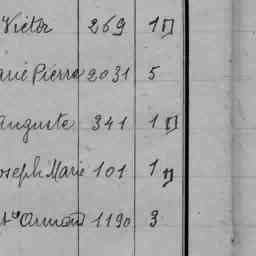 Victor 269 1
Pierre 2031 5
Auguste 341 1
Joseph Marie 101 1
Armand 1190 3